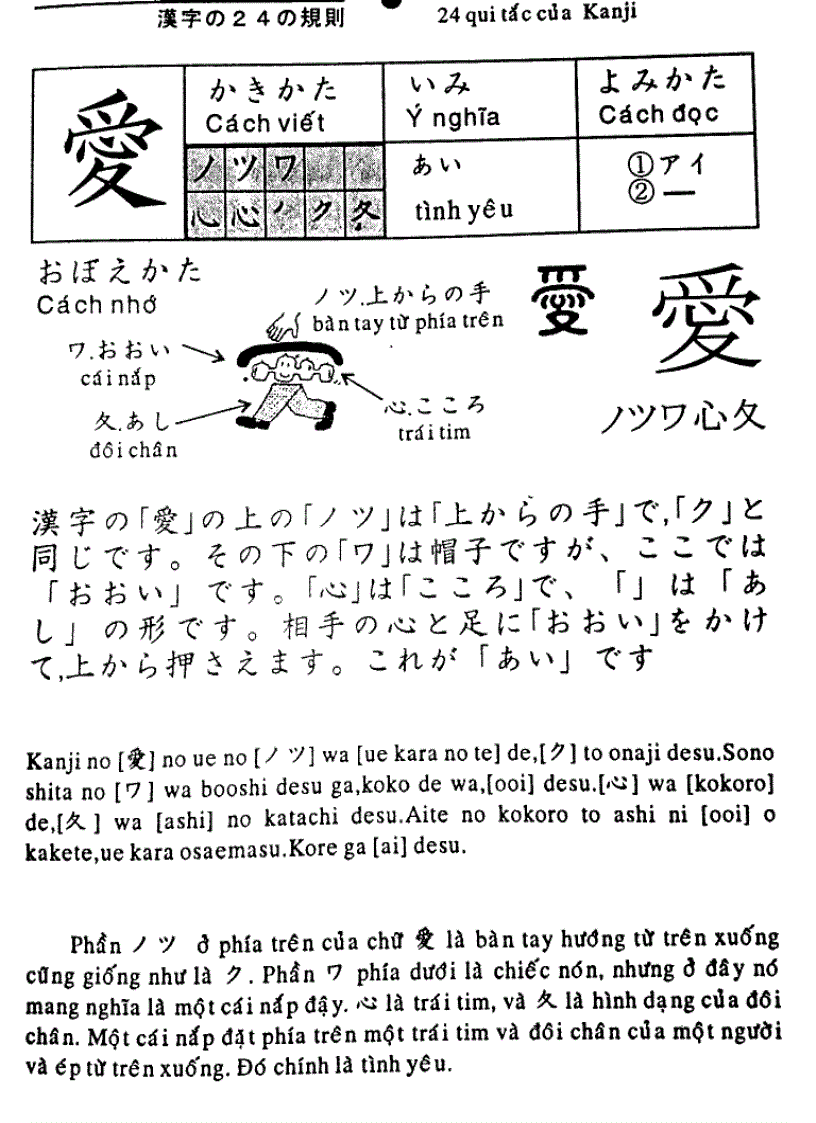 漢字の２４の規則
24 qui tắc của Kanji
愛
かきかた
Cách viết
いみ
Ý nghĩa
よみかた
Cách đọc
ノ ツ ワ
心 心 ク 夂
あい
tình yêu
①アイ
②ー
おぼえかた
Cách nhớ
ノツ.上からの手
bàn tay từ phía trên
ワ.おおい
cái nắp
夂.あし
đôi chân
心.こころ
trái tim
愛
愛
ノツワ心夂
漢字の「愛」の上の「ノツ」は「上からの手」で,「ク」と
同じです。その下の「ワ」は帽子ですが、ここでは
「おおい」です。「心」は「こころ」で、「」は「あ
し」の形です。相手の心と足に「おおい」をかけ
て,上から押さえます。これが「あい」です
Kanji no [愛] no ue no [ノツ] wa [ue kara no te] de,[ク] to onaji desu.Sono
shita no [ワ] wa booshi desu ga,koko de wa,[ooi] desu.[心] wa [kokoro]
de,[夂] wa [ashi] no katachi desu.Aite no kokoro to ashi ni [ooi] o
kakete,ue kara osaemasu.Kore ga [ai] desu.
Phần ノツ ở phía trên của chữ 愛 là bàn tay hướng từ trên xuống
cũng giống như là ク. Phần ワ phía dưới là chiếc nón, nhưng ở đây nó
mang nghĩa là một cái nắp đậy. 心 là trái tim, và 夂 là hình dạng của đôi
chân. Một cái nắp đặt phía trên một trái tim và đôi chân của một người
và ép từ trên xuống. Đó chính là tình yêu.